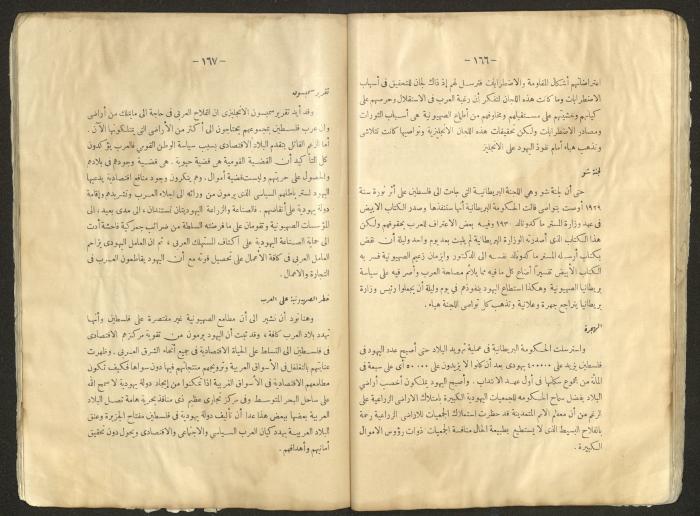 - ١٦٦ -
اعتراضاتهم أشكال المقاومة والاضطرابات فترسل لهم إذ ذاك لجان للتحقيق في أسباب
الاضطرابات وما كانت هذه اللجان لتنكر أن رغبة العرب في الاستقلال وحرصهم على
كيانهم وخشيتهم على مستقبلهم ومخاوفهم من أطماع الصهيونية هي أسباب الثورات
ومصادر الاضطرابات ولكن تحقيقات هذه اللجان الانجليزية وتواصيها كانت تتلاشى
وتذهب هباء أمام نفوذ اليهود على الانجليز
لجنة شو
حتى أن لجنة شو وهي اللجنة البريطانية التي جاءت الى فلسطين على أثر ثورة سنة
١٩٢٩ أوصت بتواصي قالت الحكومة البريطانية أنها ستنفذها وصدر الكتاب الأبيض
في عهد وزارة المستر ماكدونالد ١٩٣٠ وفيه بعض الاعتراف للعرب بحقوقهم ولكن
هذا الكتاب الذي أصدرته الوزارة البريطانية لم يلبث بعد يوم واحد وليلة أن نقض
بكتاب أرسله المستر ماكدونالد نفسه الى الدكتور وايزمان زعيم الصهيونية فسر به
الكتاب الأبيض تفسيراً أضاع كل ما فيه مما يلائم مصلحة العرب وأصر فيه على سياسة
بريطانيا الصهيونية وهكذا استطاع اليهود بنفوذهم في يوم وليلة أن يجعلوا رئيس وزارة
بريطانيا يتراجع جهرة وعلانية وتذهب كل تواصى اللجنة هباء .
الهجرة
واسترسلت الحكومة البريطانية في عملية تهويد البلاد حتى أصبح عدد اليهود في
فلسطين يزيد على ٤٠٠٠٠٠ يهودى بعد أن كانوا لا يزيدون على ٥٠٠٠٠ أى على سبعة في
المائة من مجموع سكانها في أول عهد الانتداب . وأصبح اليهود يملكون أخصب أراضي
البلاد بفضل سماح الحكومة للجمعيات اليهودية الكبيرة بامتلاك الاراضى الزراعية على
الرغم من أن معظم الامم المتمدينة قد حظرت استملاك الجمعيات للاراضى الزراعية رحمة
بالفلاح البسيط الذي لا يستطيع بطبيعة الحال منافسة الجمعيات ذوات رؤوس الاموال
الكبيرة .
- ١٦٧ -
تقرير سمبسون
وقد أيد تقرير سمبسون الانجليزى ان الفلاح العربي في حاجة الى ما يملك من أراضى
وان عرب فلسطين بمجموعهم يحتاجون الى أكثر من الأراضى التى يتملكونها الآن .
أما الزعم القائل بتقدم البلاد الاقتصادى بسبب سياسة الوطن القومي فالعرب يؤكدون
كل التأكيد أن القضية القومية هي قضية حيوية . هي قضية وجودهم في بلادهم
والحصول على حريتهم وليست قضية أموال . وهم ينكرون وجود منافع اقتصادية يدعيها
اليهود لستر باطلهم السياسي الذي يرمون من ورائه الى اجلاء العرب وتشريدهم وإقامة
دولة يهودية على أنقاضهم . فالصناعة والزراعة اليهوديتان تستندان ، الى مدى بعيد ، الى
المؤسسات الصهيونية وتقومان على ما فرضته السلطة من ضرائب جمركية فاحشة أدت
الى حماية الصناعة اليهودية على أكتاف المستهلك العربى ، ثم ان العامل اليهودى يزاحم
العامل العربى في كافة الأعمال على تحصيل قوته مع أن اليهود يقاطعون العرب في
التجارة والاعمال .
خطر الصهيونية على العرب
وهنا نود أن نشير الى أن مطامع الصهيونية غير مقتصرة على فلسطين وأنها
تهدد بلاد العرب كافة ، وقد ثبت أن اليهود يرمون من تقوية مركزهم الاقتصادى
في فلسطين الى التسلط على الحياة الاقتصادية في جميع أنحاء الشرق العربى . وظهرت
عنايتهم بالتغلغل في الأسواق العربية وترويجهم منتجاتهم فيها دون سواها فكيف تكون
مطامعهم الاقتصادية في الأسواق القريبة اذا تمكنوا من إيجاد دولة يهودية لا سمح الله
على ساحل البحر المتوسط وفي مركز تجارى عظيم ذى منافذ بحرية هامة تصل البلاد
العربية بعضها ببعض هذا عدا أن تأليف دولة يهودية في فلسطين مفتاح الجزيرة وعنق
البلاد العربية يهدد كيان العرب السياسي والاجتماعي والاقتصادى ويحول دون تحقيق
أمانيهم وأهدافهم .